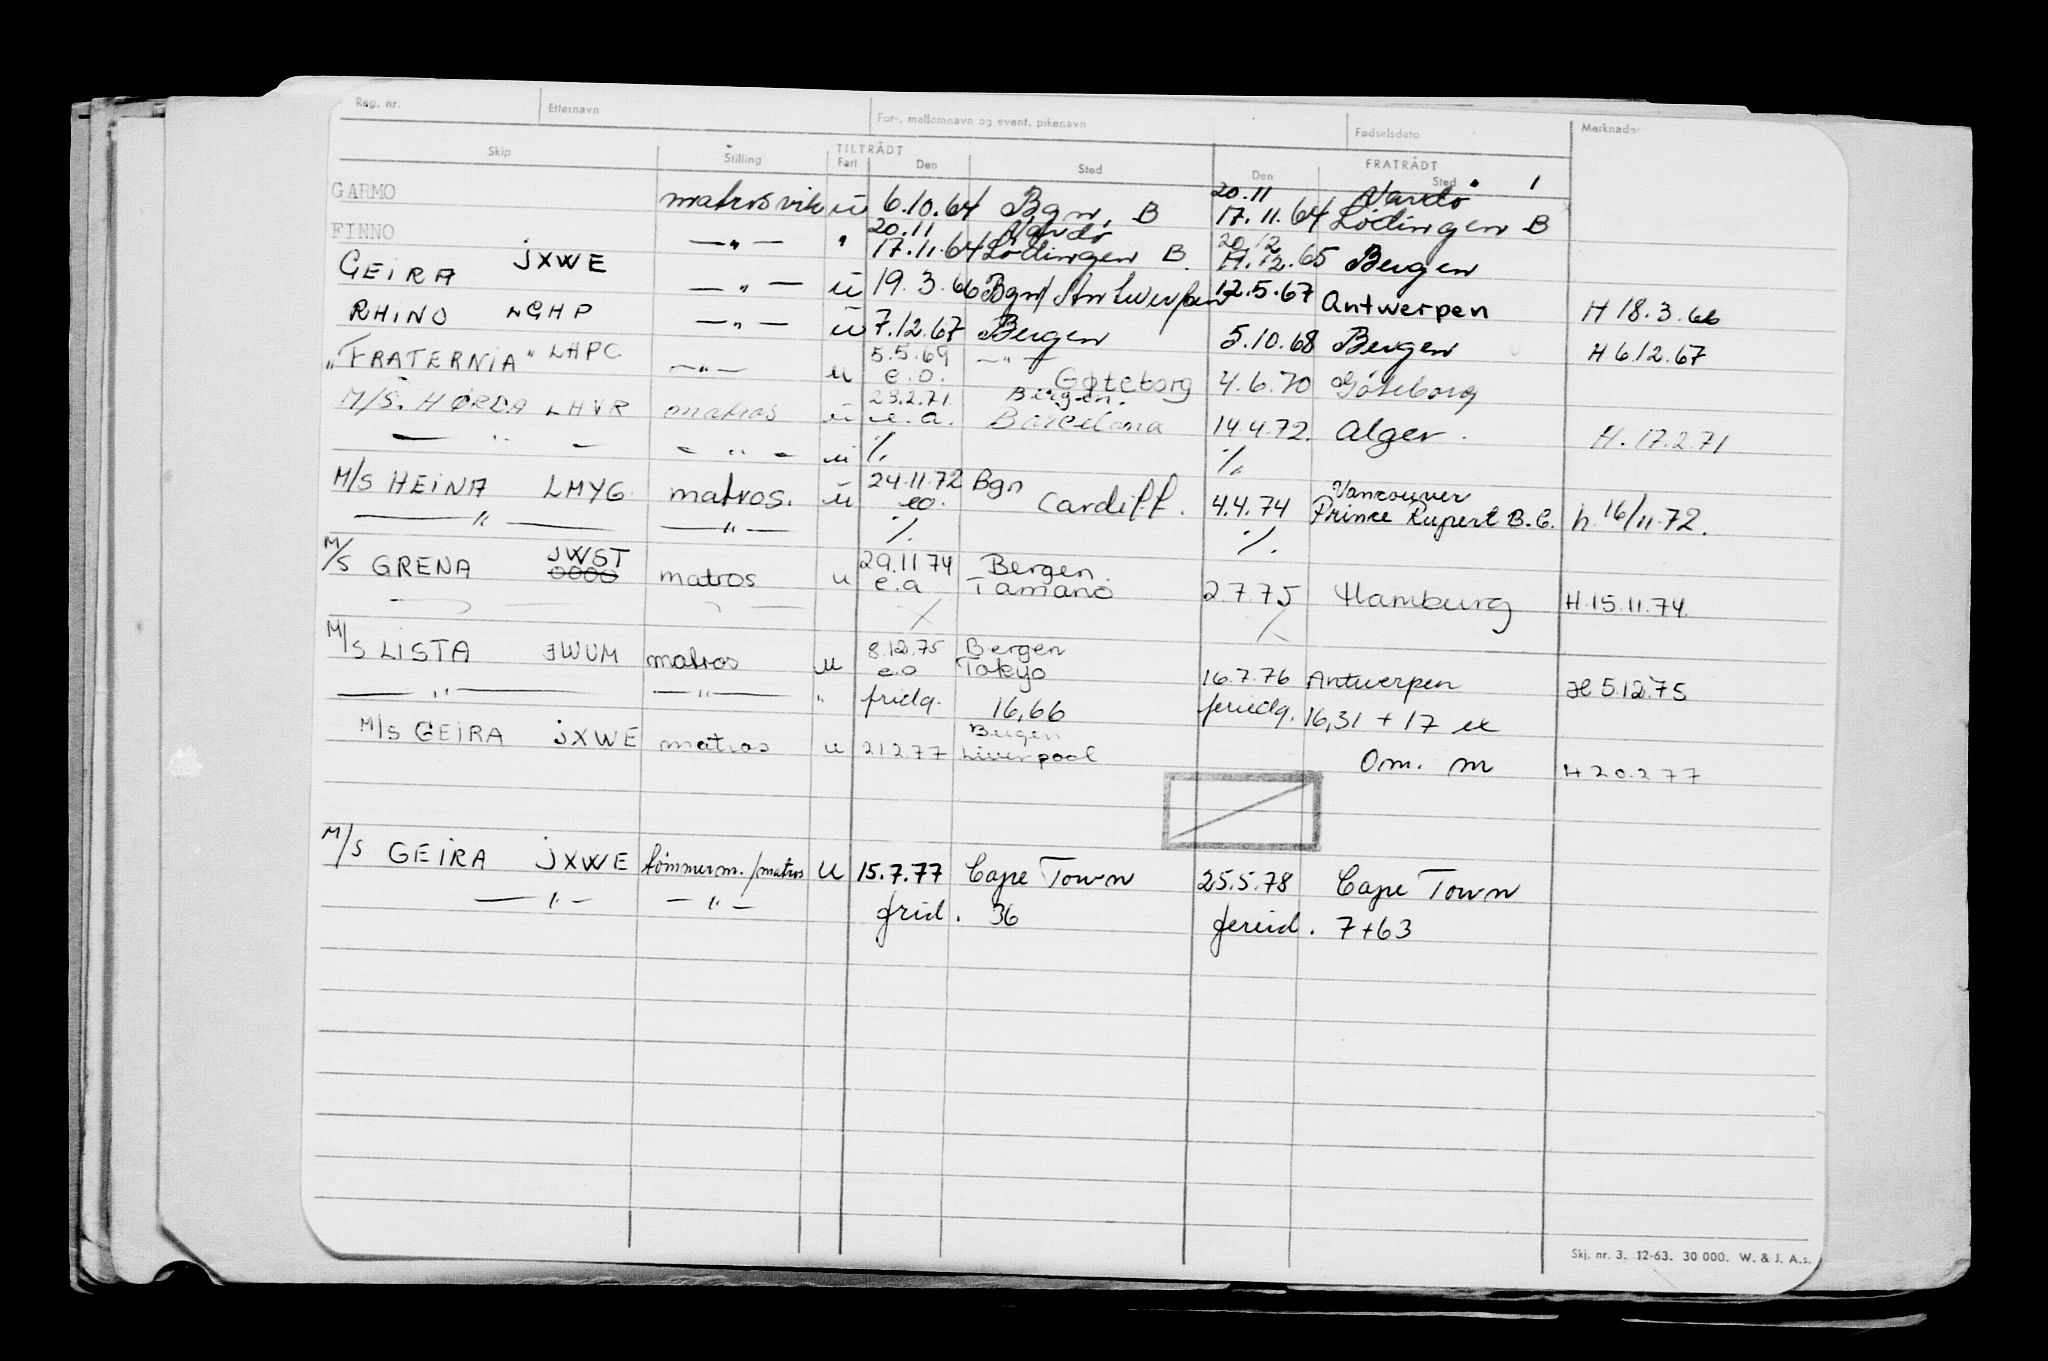 Reg. nr. Etternavn For-, mellomnavn og event. pikenavn Fødselsdato Merknader
Skip Stilling TILTRÅDT Fart Den Sted FRATRÅDT Den Sted 1
20.11 Vardø
GARMO matrosvik ü 6.10.64 Bgn, B 17.11.64 Lödingen B
20.11 Vardø 20/2
FINNO — " — " 17.11.64 Lödingen B. 65 Bergen
GEiRA jXWE — " — ü 19.3.66 Bgn/Antwerpen 12.5.67 Antwerpen H 18.3.66
RHiNO LGHP — " — ü 7.12.67 Bergen 5.10.68 Bergen H 6.12.67
5.5.69 — " —
"FRATERNiA" LHPC — " — u e.o. Gøteborg 4.6.70 Göteborg
23.2.71 Bergen.
M/S. HØRDA LHVR matros ü e.a. Barcelona 14.4.72. Alger. H. 17.2.71
— " — — " — ü %. %.
24.11.72 Bgn Vancouver
M/S HEiNA LMYG. matros. ü eo. Cardiff. 4.4.74 Prince Rupert B.C. h. 16/11-72.
— " — — " — %. %.
JWST 29.11 74 Bergen.
M/S GRENA 0000 matros u e.a Tamano 2.7.75 Hamburg H.15.11.74.
8.12.75 Bergen
M/S LiSTA JWUM matros u e.o Tokyo 16.7.76 Antwerpen H 5.12.75
— " — — " — " fridg. 16,66 feriedg. 16,31 + 17 ex
Bergen
M/S GEiRA jXWE matros u 21 2 77 Liverpool Om. m H 20.2 77
M/S GEiRA jXWE tömmerm./matros U 15.7.77 Cape Town 25.5.78 Cape Town
— " — — " — frid. 36 fereid. 7+63
Skj. nr. 3. 12-63. 30 000. W. & J. A.s.